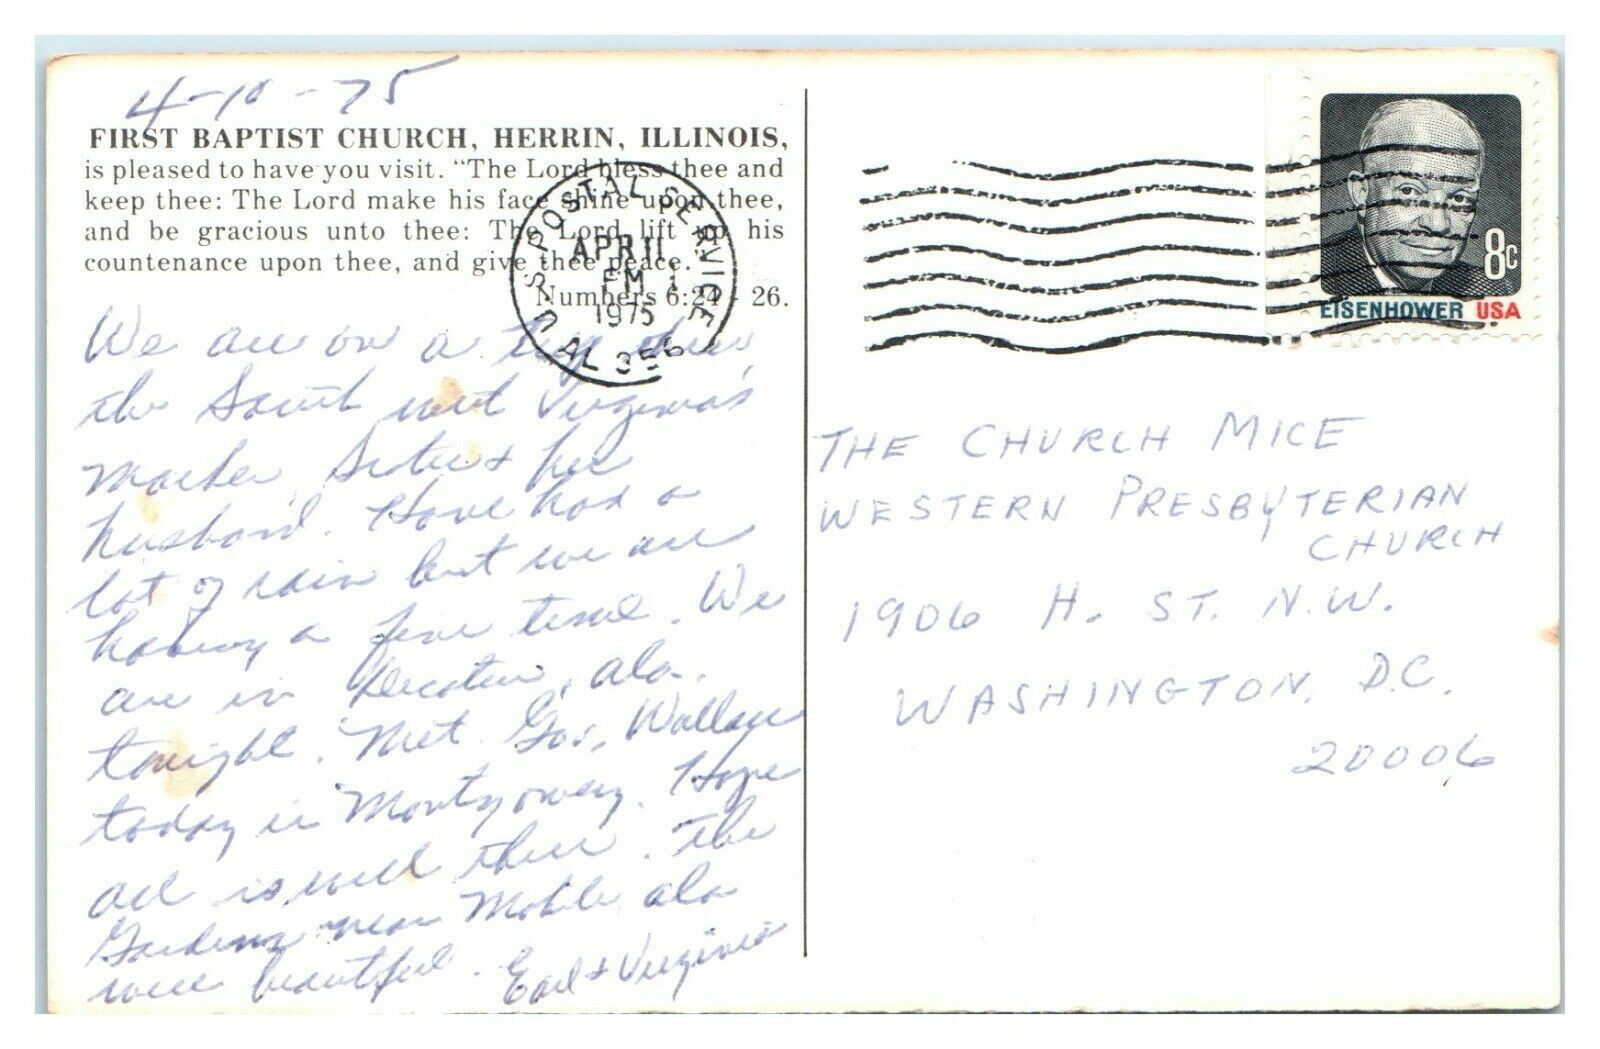 4-10-75
FIRST BAPTIST CHURCH, HERRIN, ILLINOIS,
is pleased to have you visit. "The Lord bless thee and
keep thee: The Lord make his face shine upon thee,
and be gracious unto thee: The Lord lift up his
countenance upon thee, and give thee peace."
Numbers 6:24 - 26.
We are on a trip thru
the South with Virginia's
Mother, Sister & her
husband. Have had a
lot of rain but we are
having a fine time. We
are in Decatur, Ala.
tonight. Met Gov. Wallace
today in Montgomery. Hope
all is well there. The
Gardens near Mobile Ala
were beautiful. Earl & Virginia
U.S. POSTAL SERVICE
APR 11
PM 1
1975
AL 356
8c
EISENHOWER USA
THE CHURCH MICE
WESTERN PRESBYTERIAN
CHURCH
1906 H. ST. N.W.
WASHINGTON, D.C.
20006